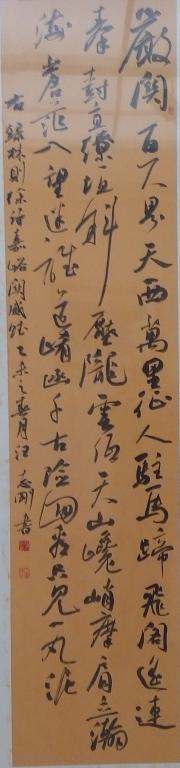 嚴関百尺界天西萬里征人駐馬蹄飛閣遙連
秦樹直繚垣斜壓隴雲低天山巉峭摩肩立瀚
海蒼茫入望迷誰道崤函千古險回看只見一丸泥
右録林則徐詩嘉峪関感賦乙未之春月汪志剛書